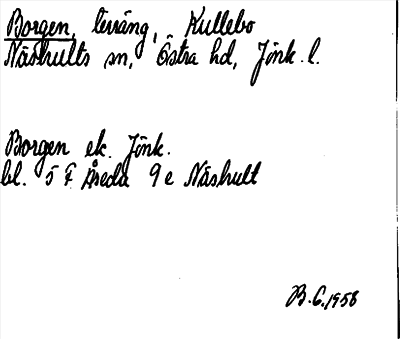 Borgen, terräng, Kullebo
Näshults sn, Östra hd, Jönk. l.
Borgen ek. Jönk.
bl. 5 F Åseda 9 e Näshult
B.G. 1958